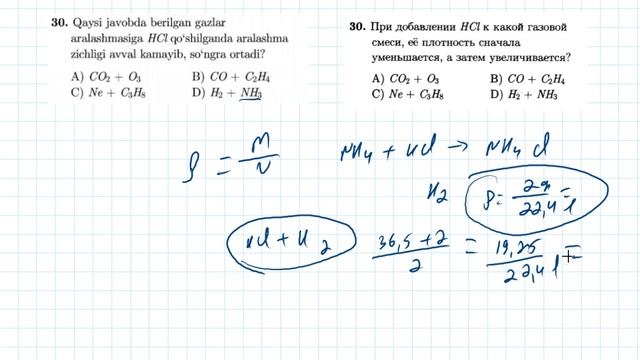 30. Qaysi javobda berilgan gazlar
aralashmasiga HCl qo‘shilganda aralashma
zichligi avval kamayib, so‘ngra ortadi?
A) CO₂ + O₃ B) CO + C₂H₄
C) Ne + C₃H₈ D) H₂ + NH₃
30. При добавлении HCl к какой газовой
смеси, её плотность сначала
уменьшается, а затем увеличивается?
A) CO₂ + O₃ B) CO + C₂H₄
C) Ne + C₃H₈ D) H₂ + NH₃
ρ = M/V
NH₄ + HCl → NH₄Cl
H₂ ρ = 2g/22,4 l =
HCl + H₂ (36,5 + 2)/2 = 19,25/22,4 l =